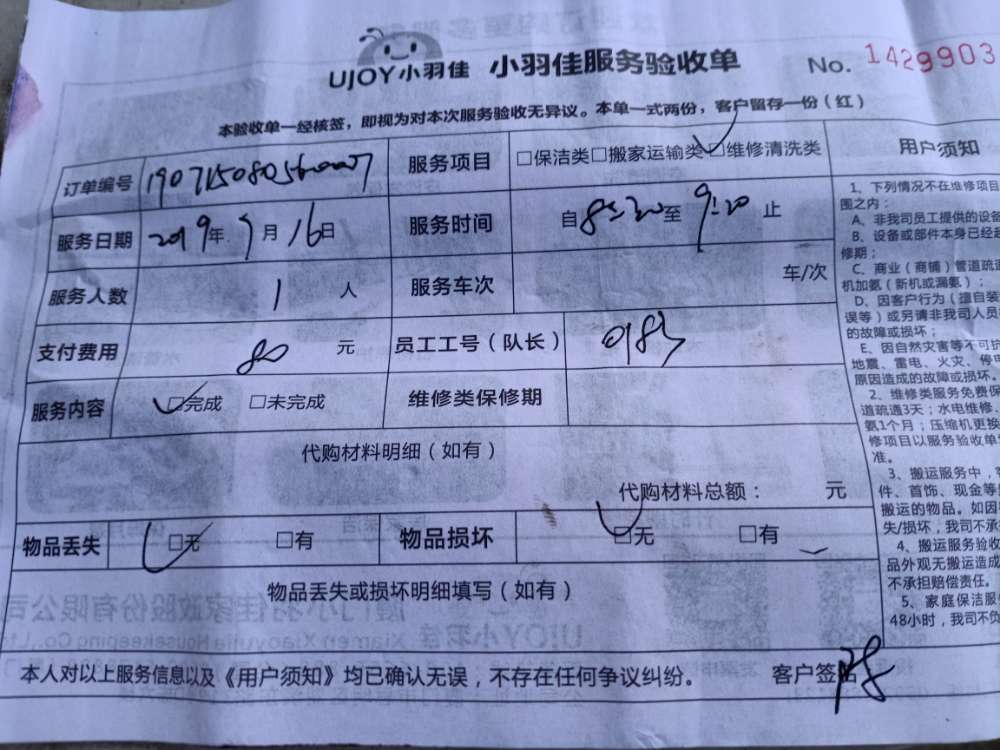 UJOY小羽佳 小羽佳服务验收单 No. 1429903
本验收单一经核签，即视为对本次服务验收无异议。本单一式两份，客户留存一份（红）
订单编号 服务项目 □保洁类□搬家运输类□维修清洗类
服务日期 2019年 月16日 服务时间 自8:20至9:20止
服务人数 1人 服务车次 车/次
支付费用 80元 员工工号（队长）
服务内容 □完成 □未完成 维修类保修期
代购材料明细（如有）
代购材料总额： 元
物品丢失 □无 □有 物品损坏 □无 □有
物品丢失或损坏明细填写（如有）
本人对以上服务信息以及《用户须知》均已确认无误，不存在任何争议纠纷。 客户签名
用户须知
1、下列情况不在维修项目
围之内：
A、非我司员工提供的设备
B、设备或部件本身已经超
修期；
C、商业（商铺）管道疏通
机加氨（新机或漏氨）；
D、因客户行为（擅自装
误等）或另请非我司人员
的故障或损坏；
E、因自然灾害等不可抗
地震、雷电、火灾、停电
原因造成的故障或损坏。
2、维修类服务免费保
道疏通3天；水电维修，
氨1个月；压缩机更换
修项目以服务验收单
准。
3、搬运服务中，
件、首饰、现金等
搬运的物品。如因
失/损坏，我司不承
4、搬运服务验收
品外观无搬运造成
不承担赔偿责任。
5、家庭保洁服
48小时，我司不负